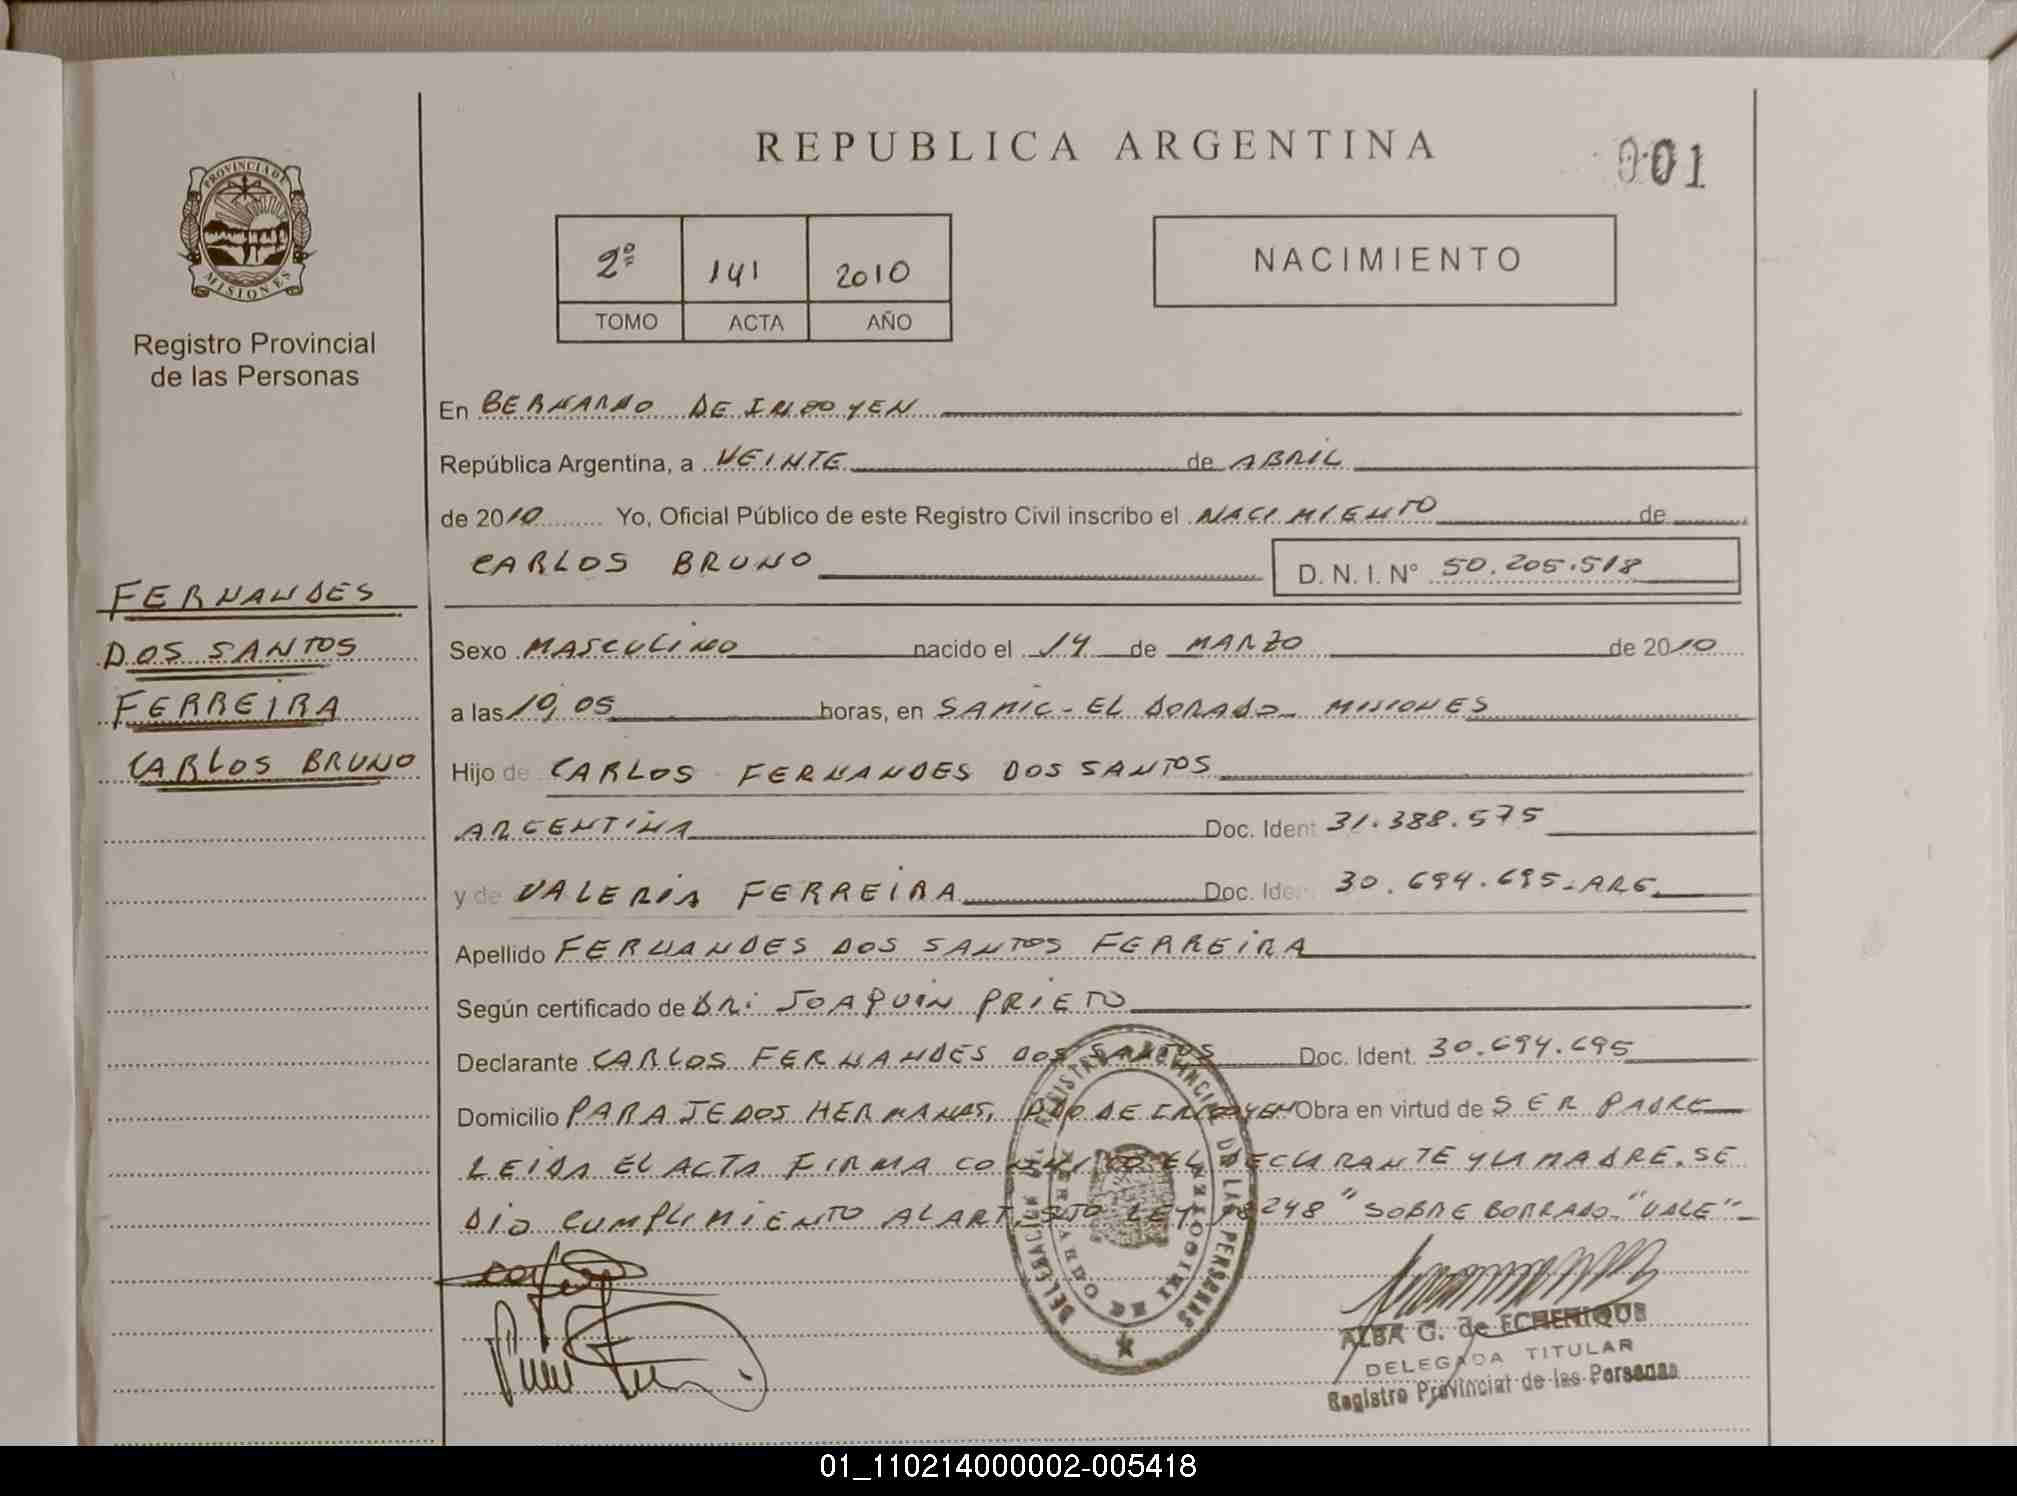 REPUBLICA ARGENTINA
001
PROVINCIA DE MISIONES
Registro Provincial
de las Personas
2º 141 2010
TOMO ACTA AÑO
NACIMIENTO
En BERNARDO DE IRIGOYEN
República Argentina, a VEINTE de ABRIL
de 2010 Yo, Oficial Público de este Registro Civil inscribo el NACIMIENTO de
CARLOS BRUNO D. N. I. N° 50.205.518
FERNANDES
DOS SANTOS
FERREIRA
CARLOS BRUNO
Sexo MASCULINO nacido el 14 de MARZO de 2010
a las 10,05 horas, en SAMIC - EL DORADO - MISIONES
Hijo de CARLOS FERNANDES DOS SANTOS
ARGENTINA Doc. Ident 31.388.575
y de VALERIA FERREIRA Doc. Iden 30.694.695 - ARG.
Apellido FERNANDES DOS SANTOS FERREIRA
Según certificado de DR: JOAQUIN PRIETO
Declarante CARLOS FERNANDES DOS SANTOS Doc. Ident. 30.694.695
Domicilio PARAJE DOS HERMANAS, BDO DE IRIGOYEN Obra en virtud de SER PADRE
LEIDA EL ACTA FIRMA CONMIGO EL DECLARANTE Y LA MADRE. SE
DIO CUMPLIMIENTO AL ART. 5TO LEY 18248 "SOBRE BORRADO "VALE" -
DELEGACION DEL REGISTRO PROVINCIAL DE LAS PERSONAS
BERNARDO DE IRIGOYEN
ALBA G. de ECHENIQUE
DELEGADA TITULAR
Registro Provincial de las Personas
01_110214000002-005418